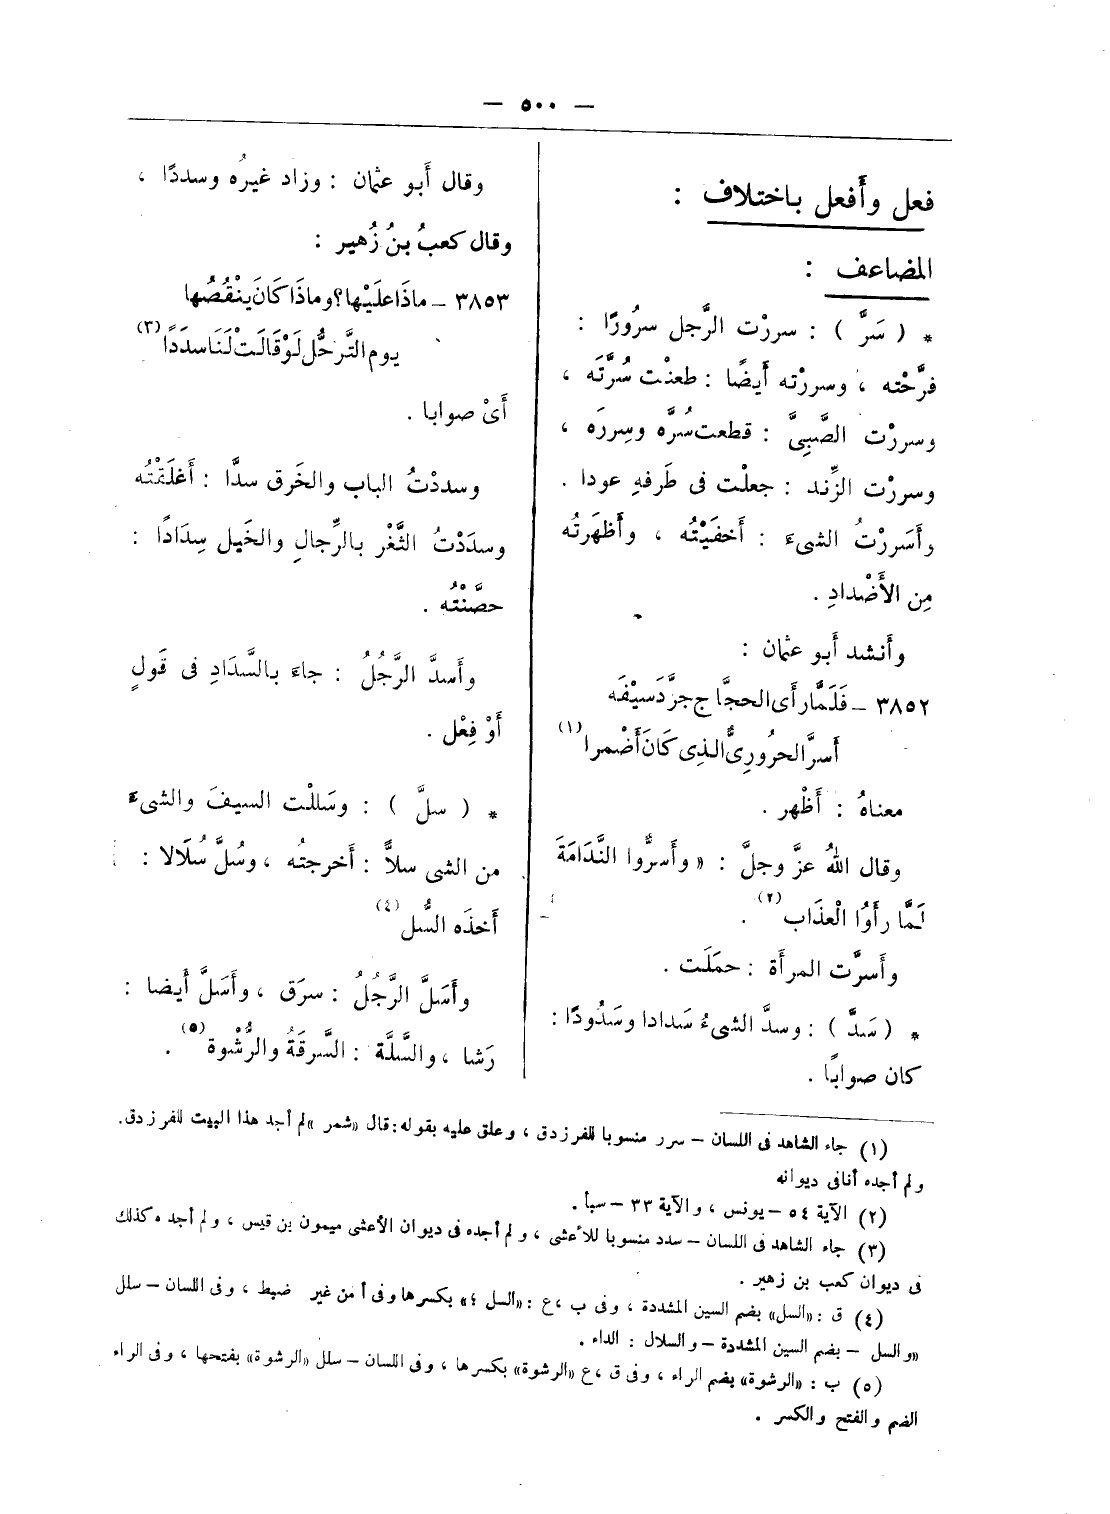 — ٥٠٠ —
فعل وأَفعل باختلاف :
المضاعف :
* ( سَرَّ ) : سررْت الرَّجل سرُورًا :
فرَّحْته ، وسررْته أَيضًا : طعنْت سُرَّتَه ،
وسررْت الصَّبِىَّ : قطعت سُرَّه وسِررَه ،
وسررْت الزِّند : جعلْت فى طَرفهِ عودا .
وأَسَررْتُ الشىءَ : أَخفَيْتُه ، وأَظهَرتُه
مِن الأَضْدادِ .
وأَنشد أَبو عثمان :
٣٨٥٢ – فَلَمَّا رأَى الحجَّاج جرَّدَ سيْفَه
أَسرَّ الحرُورِىُّ الذِى كَانَ أَضْمرا (١)
معناهُ : أَظْهر .
وقال اللهُ عزَّ وجلَّ : « وأَسرُّوا النَّدَامَةَ
لَمَّا رأَوُا الْعذَاب (٢) .
وأَسرَّت المرأَة : حمَلَت .
* ( سَدَّ ) : وسدَّ الشىءُ سَدادا وسَدُودًا :
كان صوابًا .
وقال أَبو عثمان : وزاد غيرُه وسددًا ،
وقال كعبُ بنُ زُهير :
٣٨٥٣ – ماذَا علَيْها؟ وماذَا كَانَ ينْقُصُها
يوم التَّرحُّلِ لَوْ قَالَتْ لَنَا سدَدًا (٣)
أَىْ صوابا .
وسددْتُ الباب والخَرق سدًّا : أَغلَقْتُه
وسدَدْتُ الثَّغْر بالرِّجالِ والخَيل سِدَادًا :
حصَّنْتُه .
وأَسدَّ الرَّجُلُ : جاءَ بالسَّدَادِ فى قَولٍ
أَوْ فِعْل .
* ( سلَّ ) : وسَللْت السيفَ والشىءَ
من الشى سلاًّ : أَخرجتُه ، وسُلَّ سُلَالا :
أَخذَه السُّل (٤)
وأَسَلَّ الرَّجُلُ : سرَق ، وأَسَلَّ أَيضا :
رَشا ، والسَّلَّة : السَّرقَةُ والرُّشْوة (٥) .
(١) جاء الشاهد فى اللسان – سرر منسوبا للفرزدق ، وعلق عليه بقوله : قال «شمر» لم أجد هذا البيت للفرزدق.
ولم أجده أنافى ديوانه
(٢) الآية ٥٤ – يونس ، والآية ٣٣ – سبأ .
(٣) جاء الشاهد فى اللسان – سدد منسوبا للأعشى ، ولم أجده فى ديوان الأعشى ميمون بن قيس ، ولم أجده كذلك
فى ديوان كعب بن زهير .
(٤) ق : «السل» بضم السين المشددة ، وفى ب ، ع : «السل ؛» بكسرها وفى أ من غير ضبط ، وفى اللسان – سلل
«والسل – بضم السين المشددة – والسلال : الداء .
(٥) ب : «الرشوة» بضم الراء ، وفى ق ، ع «الرشوة» بكسرها ، وفى اللسان – سلل «الرشوة» بفتحها ، وفى الراء
الضم والفتح والكسر .